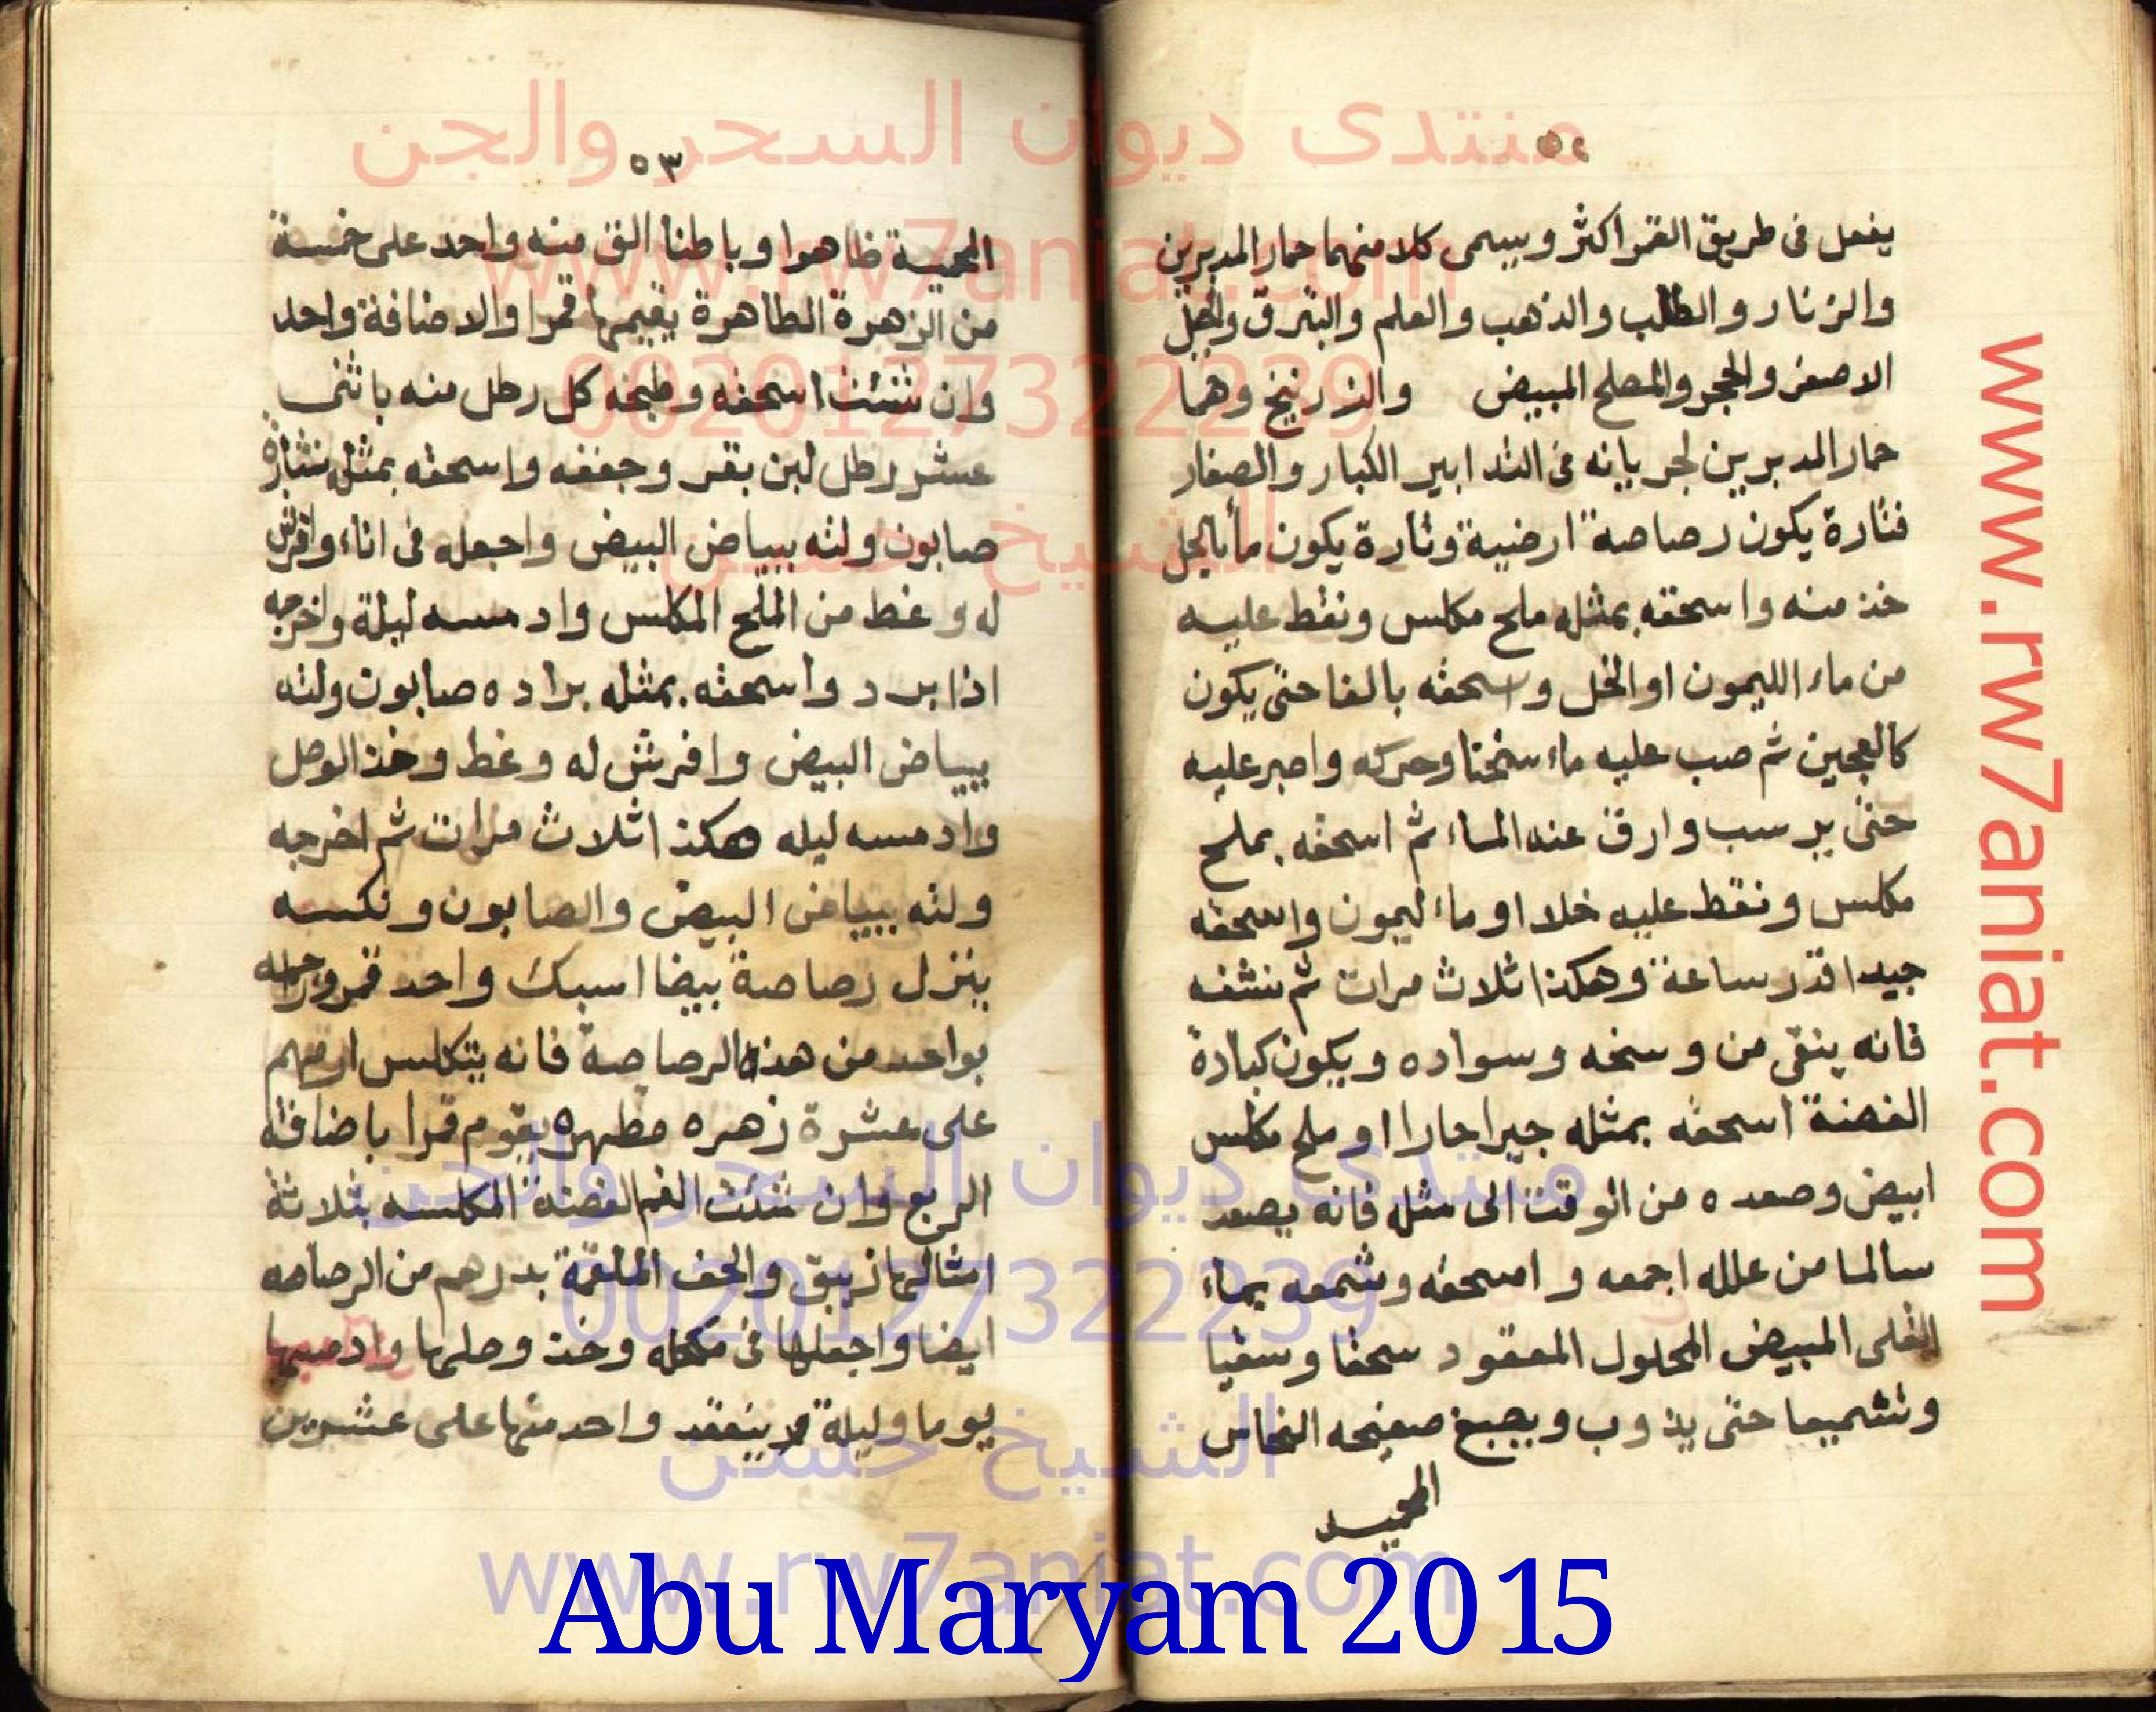 منتدى ديوان السحر والجن
www.rw7aniat.com
00201127322239
الشيخ حسن
٥٢
يفعل فى طريق القمر اكثر ويسمى كلا منهما حمار المدبرين
والزنار والطلب والذهب والعلم والبرق والجبل
الاصفر والحجر والمصلح المبيض والزرنيخ وهما
حمار المدبرين لجريانه فى التدابير الكبار والصغار
فتارة يكون رصاصة ارضية وتارة يكون مأبالجل
خذ منه واسحقه بمثله ملح مكلس ونقط عليه
من ماء الليمون او الخل واسحقه بالغا حتى يكون
كالعجين ثم صب عليه ماء سخنا وحركه واصبر عليه
حتى يرسب وارق عنه الماء ثم اسحقه بملح
مكلس ونقط عليه خلا او ماء ليمون واسحقه
جيدا قدر ساعة وهكذا ثلاث مرات ثم نشفه
فانه ينقى من وسخه وسواده ويكون كبادة
الفضة اسحقه بمثله جيرا حارا او ملح مكلس
ابيض وصعده من الوقت الى مثله فانه يصعد
سالما من علله اجمعه واسحقه وشمعه بماء
القلى المبيض المحلول المعقود سحقا وسقيا
وتشميعا حتى يذوب ويصبغ صفيحه النحاس
المحميه
٥٣
المحمية ظاهرا وباطنا الق منه واحد على خمسة
من الزهرة الطاهرة يقيمها قمرا والاضافة واحد
وان شئت اسحقه وطبخه كل رطل منه باثنى
عشر رطل لبن بقر وجففه واسحقه بمثله نشارة
صابون ولته ببياض البيض واجعله فى اناء وافرش
له وغط من الملح المكلس وادمسه ليلة واخرجه
اذا برد واسحقه بمثله براده صابون ولته
ببياض البيض وافرش له وغط وخذ الوصل
وادمسه ليله هكذا ثلاث مرات ثم اخرجه
ولته ببياض البيض والصابون ونكسه
ينزل رصاصة بيضا اسبك واحد قمر وزاوجه
بواحد من هذه الرصاصة فانه يتكلس ارمهم
على عشرة زهره مطهره يقوم قمرا باضافة
الربع وان شئت الغم الفضة المكلسه بثلاثة
امثالها زيبق والحق الملغمة بدرهم من الرصاصه
ايضا واجعلها فى مكحله وخذ وصلها وادمسها
يوما وليلة ينعقد واحد منها على عشرين
منتدى ديوان السحر والجن
00201127322239
الشيخ حسن
www.rw7aniat.com
www.rw7aniat.com
Abu Maryam 2015